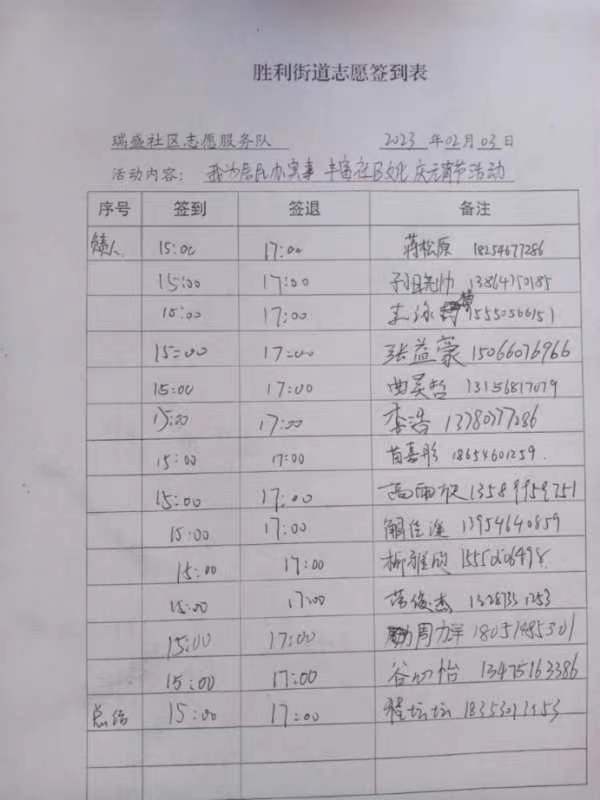 胜利街道志愿签到表
瑞盛社区志愿服务队 2023 年 02 月 03 日
活动内容: 我为居民办实事 丰富社区文化 庆元宵节活动
序号 签到 签退 备注
15:00 17:00 蒋松原 18254677286
15:00 17:00 13864750185
15:00 17:00
15:00 17:00 张益豪 15066076966
15:00 17:00 曲昊哲 13156817079
15:00 17:00 李浩 13780777286
15:00 17:00 肖嘉彤 18654601259
15:00 17:00 高雨欣 13589959251
15:00 17:00 13954640859
15:00 17:00 柳雅 
15:00 17:00 俊杰
15:00 17:00 周 18051485301
15:00 17:00 谷 怡 13475163386
总结 15:00 17:00 程坛坛